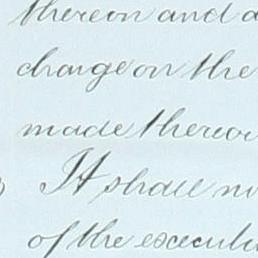 thereon and a
charge on the
made thereon
It shall no
of the execut